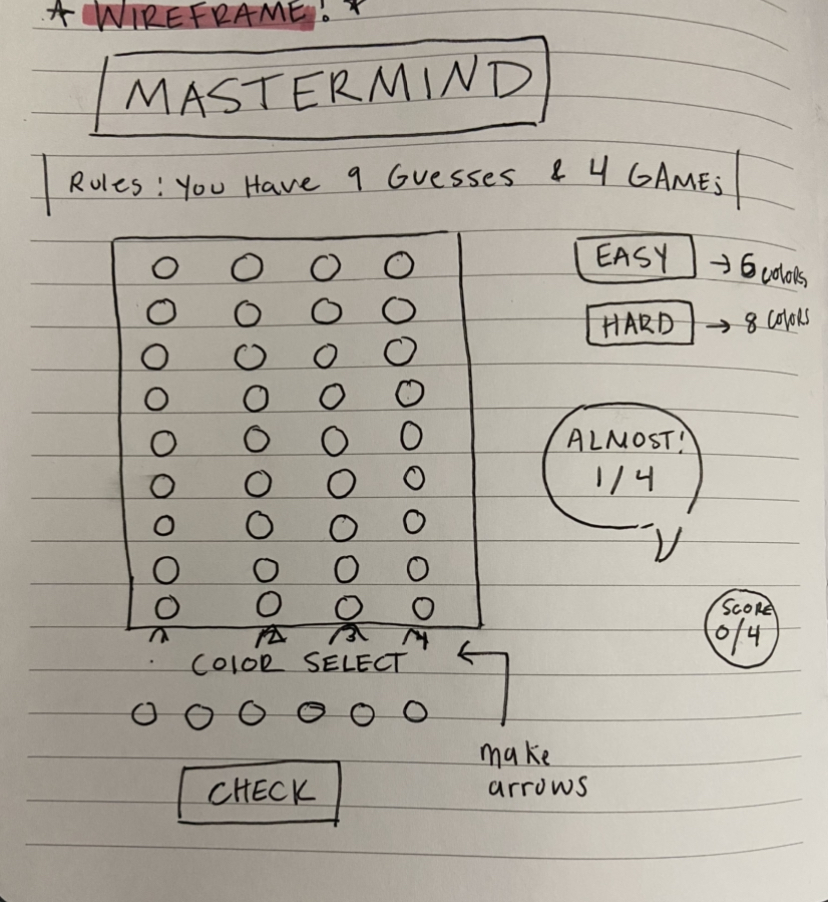 ★ WIREFRAME! ★
MASTERMIND
Rules: You Have 9 Guesses & 4 GAMES
EASY → 6 colors
HARD → 8 colors
ALMOST!
1/4
SCORE
0/4
1 2 3 4
COLOR SELECT
make
arrows
CHECK